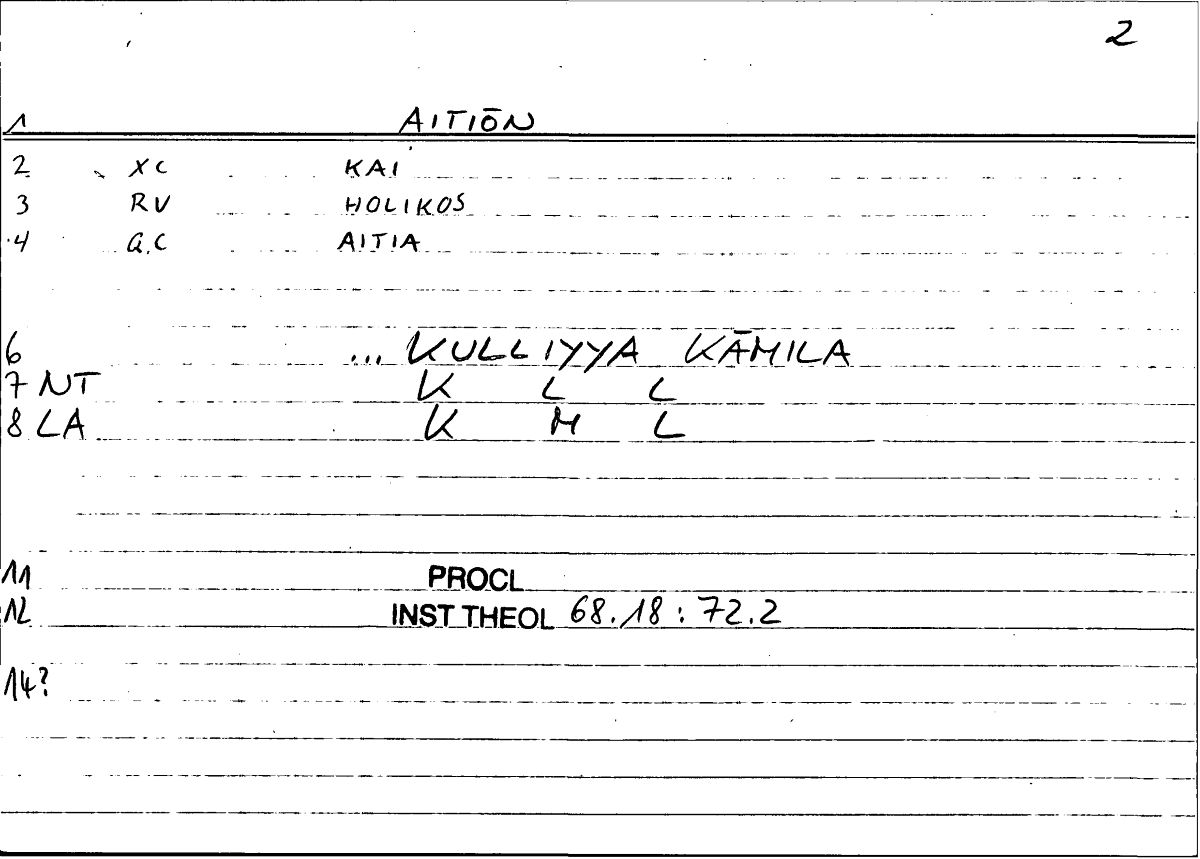 2
1 AITIŌN
2 XC KAI
3 RV HOLIKOS
4 G.C AITIA
6 ... KULLIYYA KĀMILA
7 NT K L L
8 LA K M L
11 PROCL
12 INST THEOL 68.18 : 72.2
14?